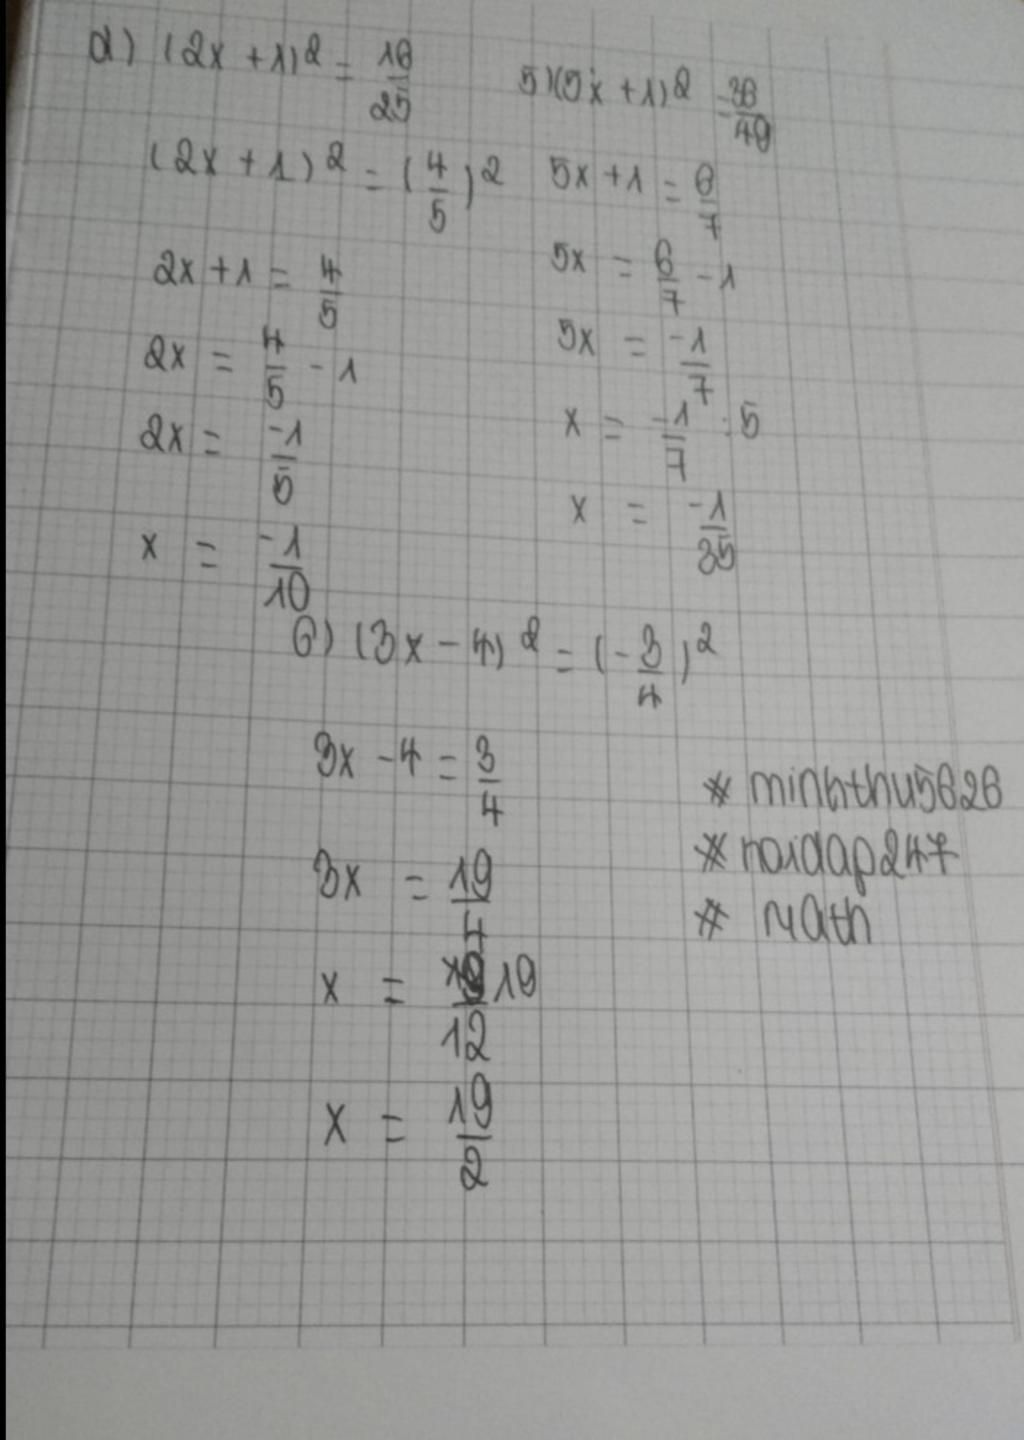 d) (2x + 1)² = 16/25
(2x + 1)² = (4/5)²
2x + 1 = 4/5
2x = 4/5 - 1
2x = -1/5
x = -1/10
5) (5x + 1)² = 36/49
5x + 1 = 6/7
5x = 6/7 - 1
5x = -1/7
x = -1/7 : 5
x = -1/35
6) (3x - 4)² = (-3/4)²
3x - 4 = 3/4
3x = 19/4
x = 19/12
x = 19/2
# minhthu5626
# hoidap247
# Math